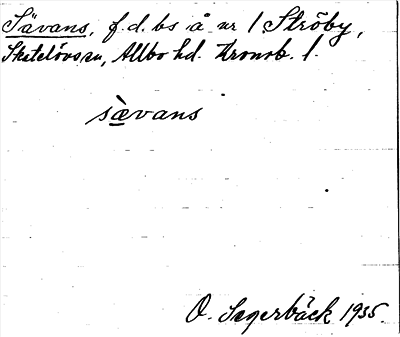 Sävans, f.d. bs å nr 1 Ströby,
Skatelövs sn, Allbo hd. Kronob. l.
sàevans
O. Sagerbäck 1935.